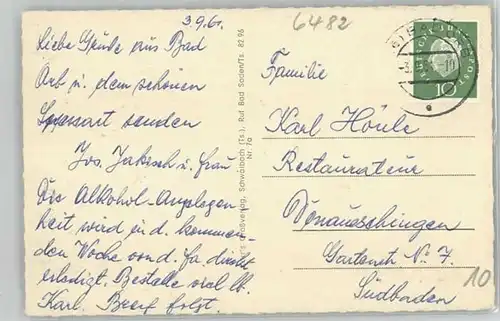 3.9.61.
6482
Liebe Grüße aus Bad
Orb u. dem schönen
Spessart senden
Jos. u. Frau.
Die Alkohol-Angelegen-
heit wird in d. kommen-
den Woche von d. Fa direkt
erledigt. Bestelle viel lb.
Karl. Brief folgt.
Schwalbach (Ts.), Ruf Bad Soden/Ts. 82 86
Nr. 7a
DEUTSCHE BUNDESPOST
10
Familie
Karl Höule
Restaurateur
Donaueschingen
Gartenstr. No. 7.
Südbaden
10